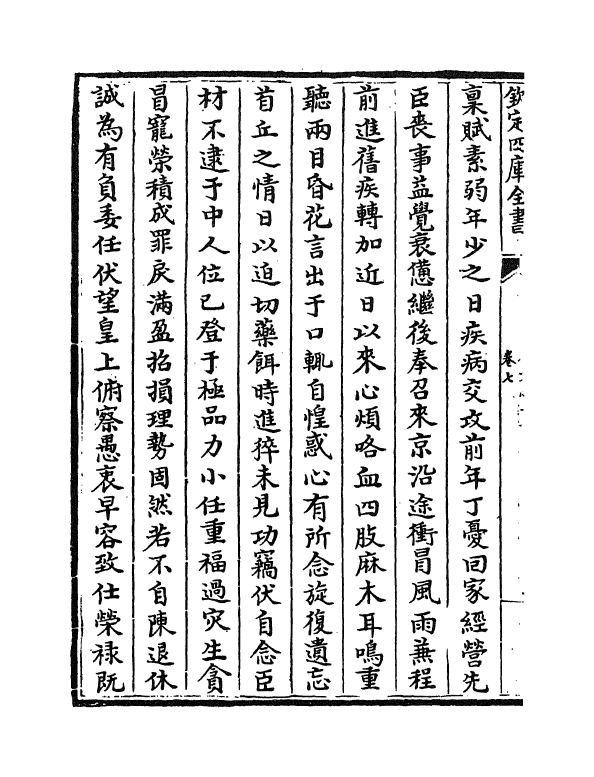 欽定四庫全書
卷七
稟賦素弱年少之日疾病交攻前年丁憂回家經營先
臣喪事益覺衰憊繼後奉召來京沿途衝冒風雨兼程
前進舊疾轉加近日以來心煩咯血四肢麻木耳鳴重
聽兩目昏花言出于口輒自惶惑心有所念旋復遺忘
首丘之情日以迫切藥餌時進猝未見功竊伏自念臣
材不逮于中人位已登于極品力小任重福過灾生貪
冒寵榮積成罪戾滿盈招損理勢固然若不自陳退休
誠為有負委任伏望皇上俯察愚衷早容致仕榮禄旣